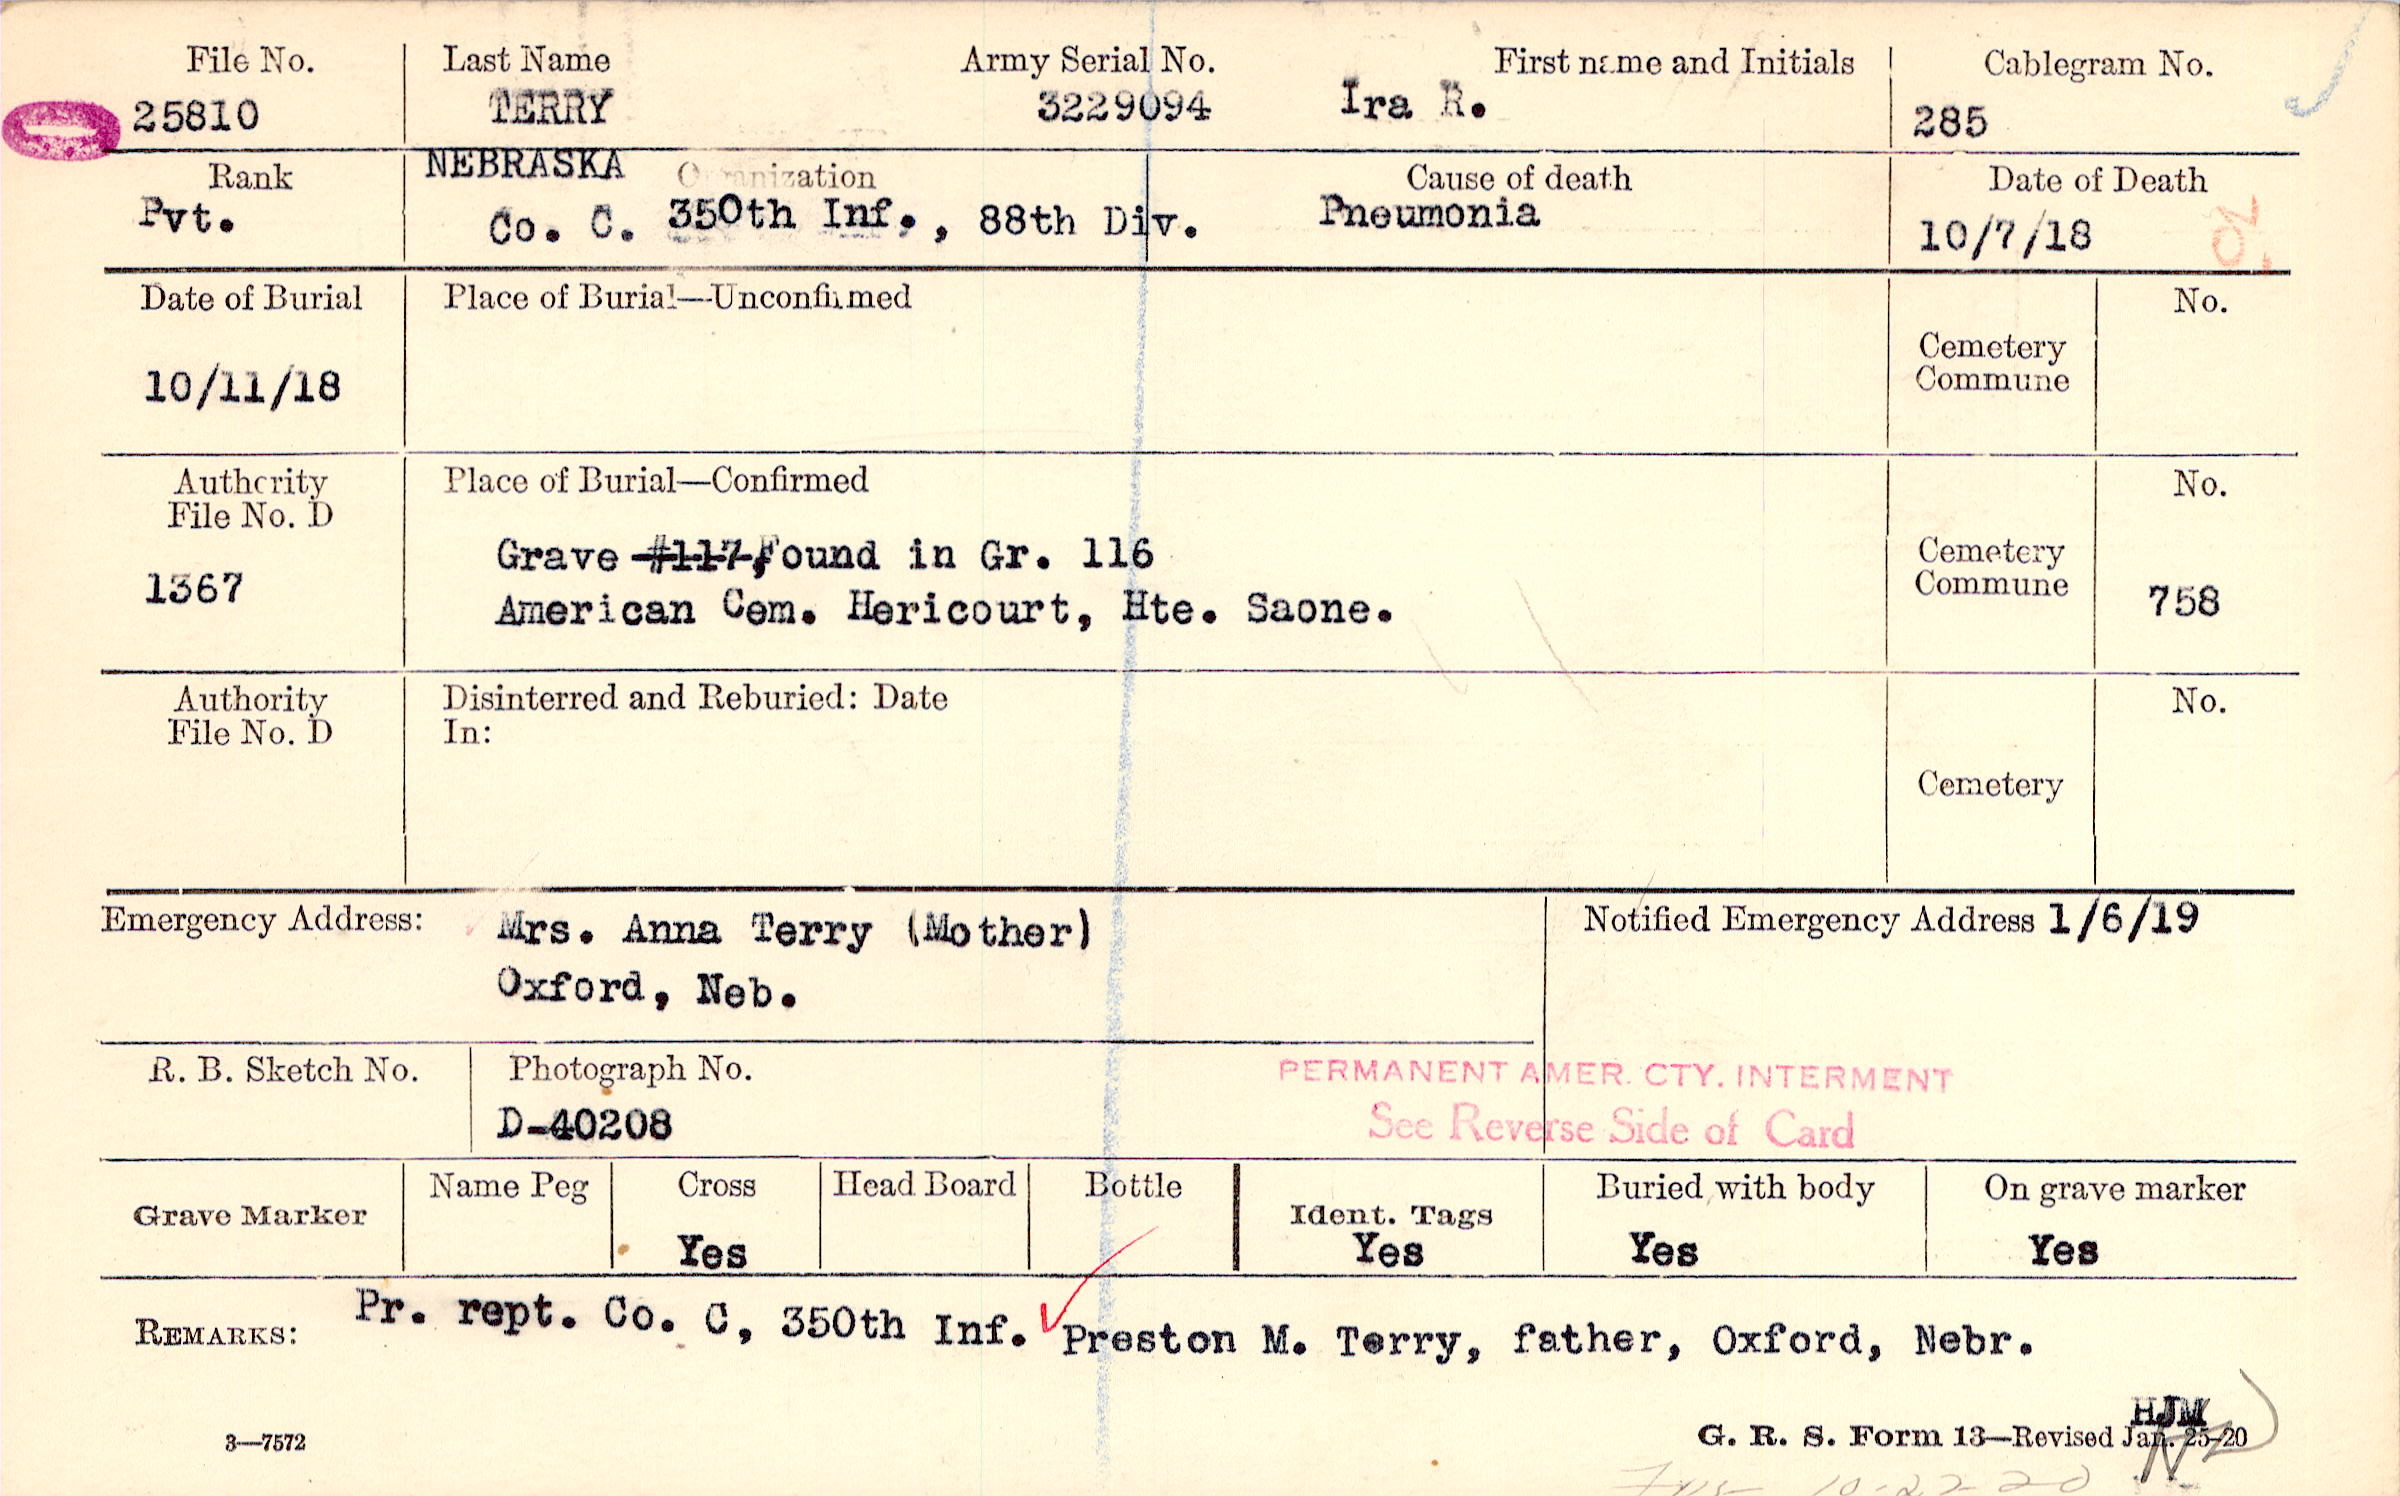 File No. Last Name Army Serial No. First name and Initials Cablegram No.
25810 TERRY 3229094 Ira R. 285
Rank NEBRASKA Organization Cause of death Date of Death
Pvt. Co. C. 350th Inf., 88th Div. Pneumonia 10/7/18
Date of Burial Place of Burial—Unconfirmed No.
Cemetery
Commune
10/11/18
Authority Place of Burial—Confirmed No.
File No. D
Grave #117, Found in Gr. 116 Cemetery
1367 Commune 758
American Cem. Hericourt, Hte. Saone.
Authority Disinterred and Reburied: Date No.
File No. D In:
Cemetery
Emergency Address: Mrs. Anna Terry (Mother) Notified Emergency Address 1/6/19
Oxford, Neb.
R. B. Sketch No. Photograph No. PERMANENT AMER. CTY. INTERMENT
D-40208 See Reverse Side of Card
Name Peg Cross Head Board Bottle Buried with body On grave marker
Grave Marker Ident. Tags
Yes Yes Yes Yes
REMARKS: Pr. rept. Co. C, 350th Inf. Preston M. Terry, father, Oxford, Nebr.
HJM
3—7572 G. R. S. Form 13—Revised Jan. 25-20
10-22-20